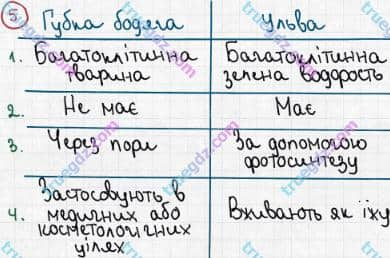 5 Губка бодяга Ульва
1. Багатоклітинна тварина Багатоклітинна зелена водорость
2. Не має Має
3. Через пори За допомогою фотосинтезу
4. Застосовують в медичних або косметологічних цілях Вживають як їжу
truegdz.com